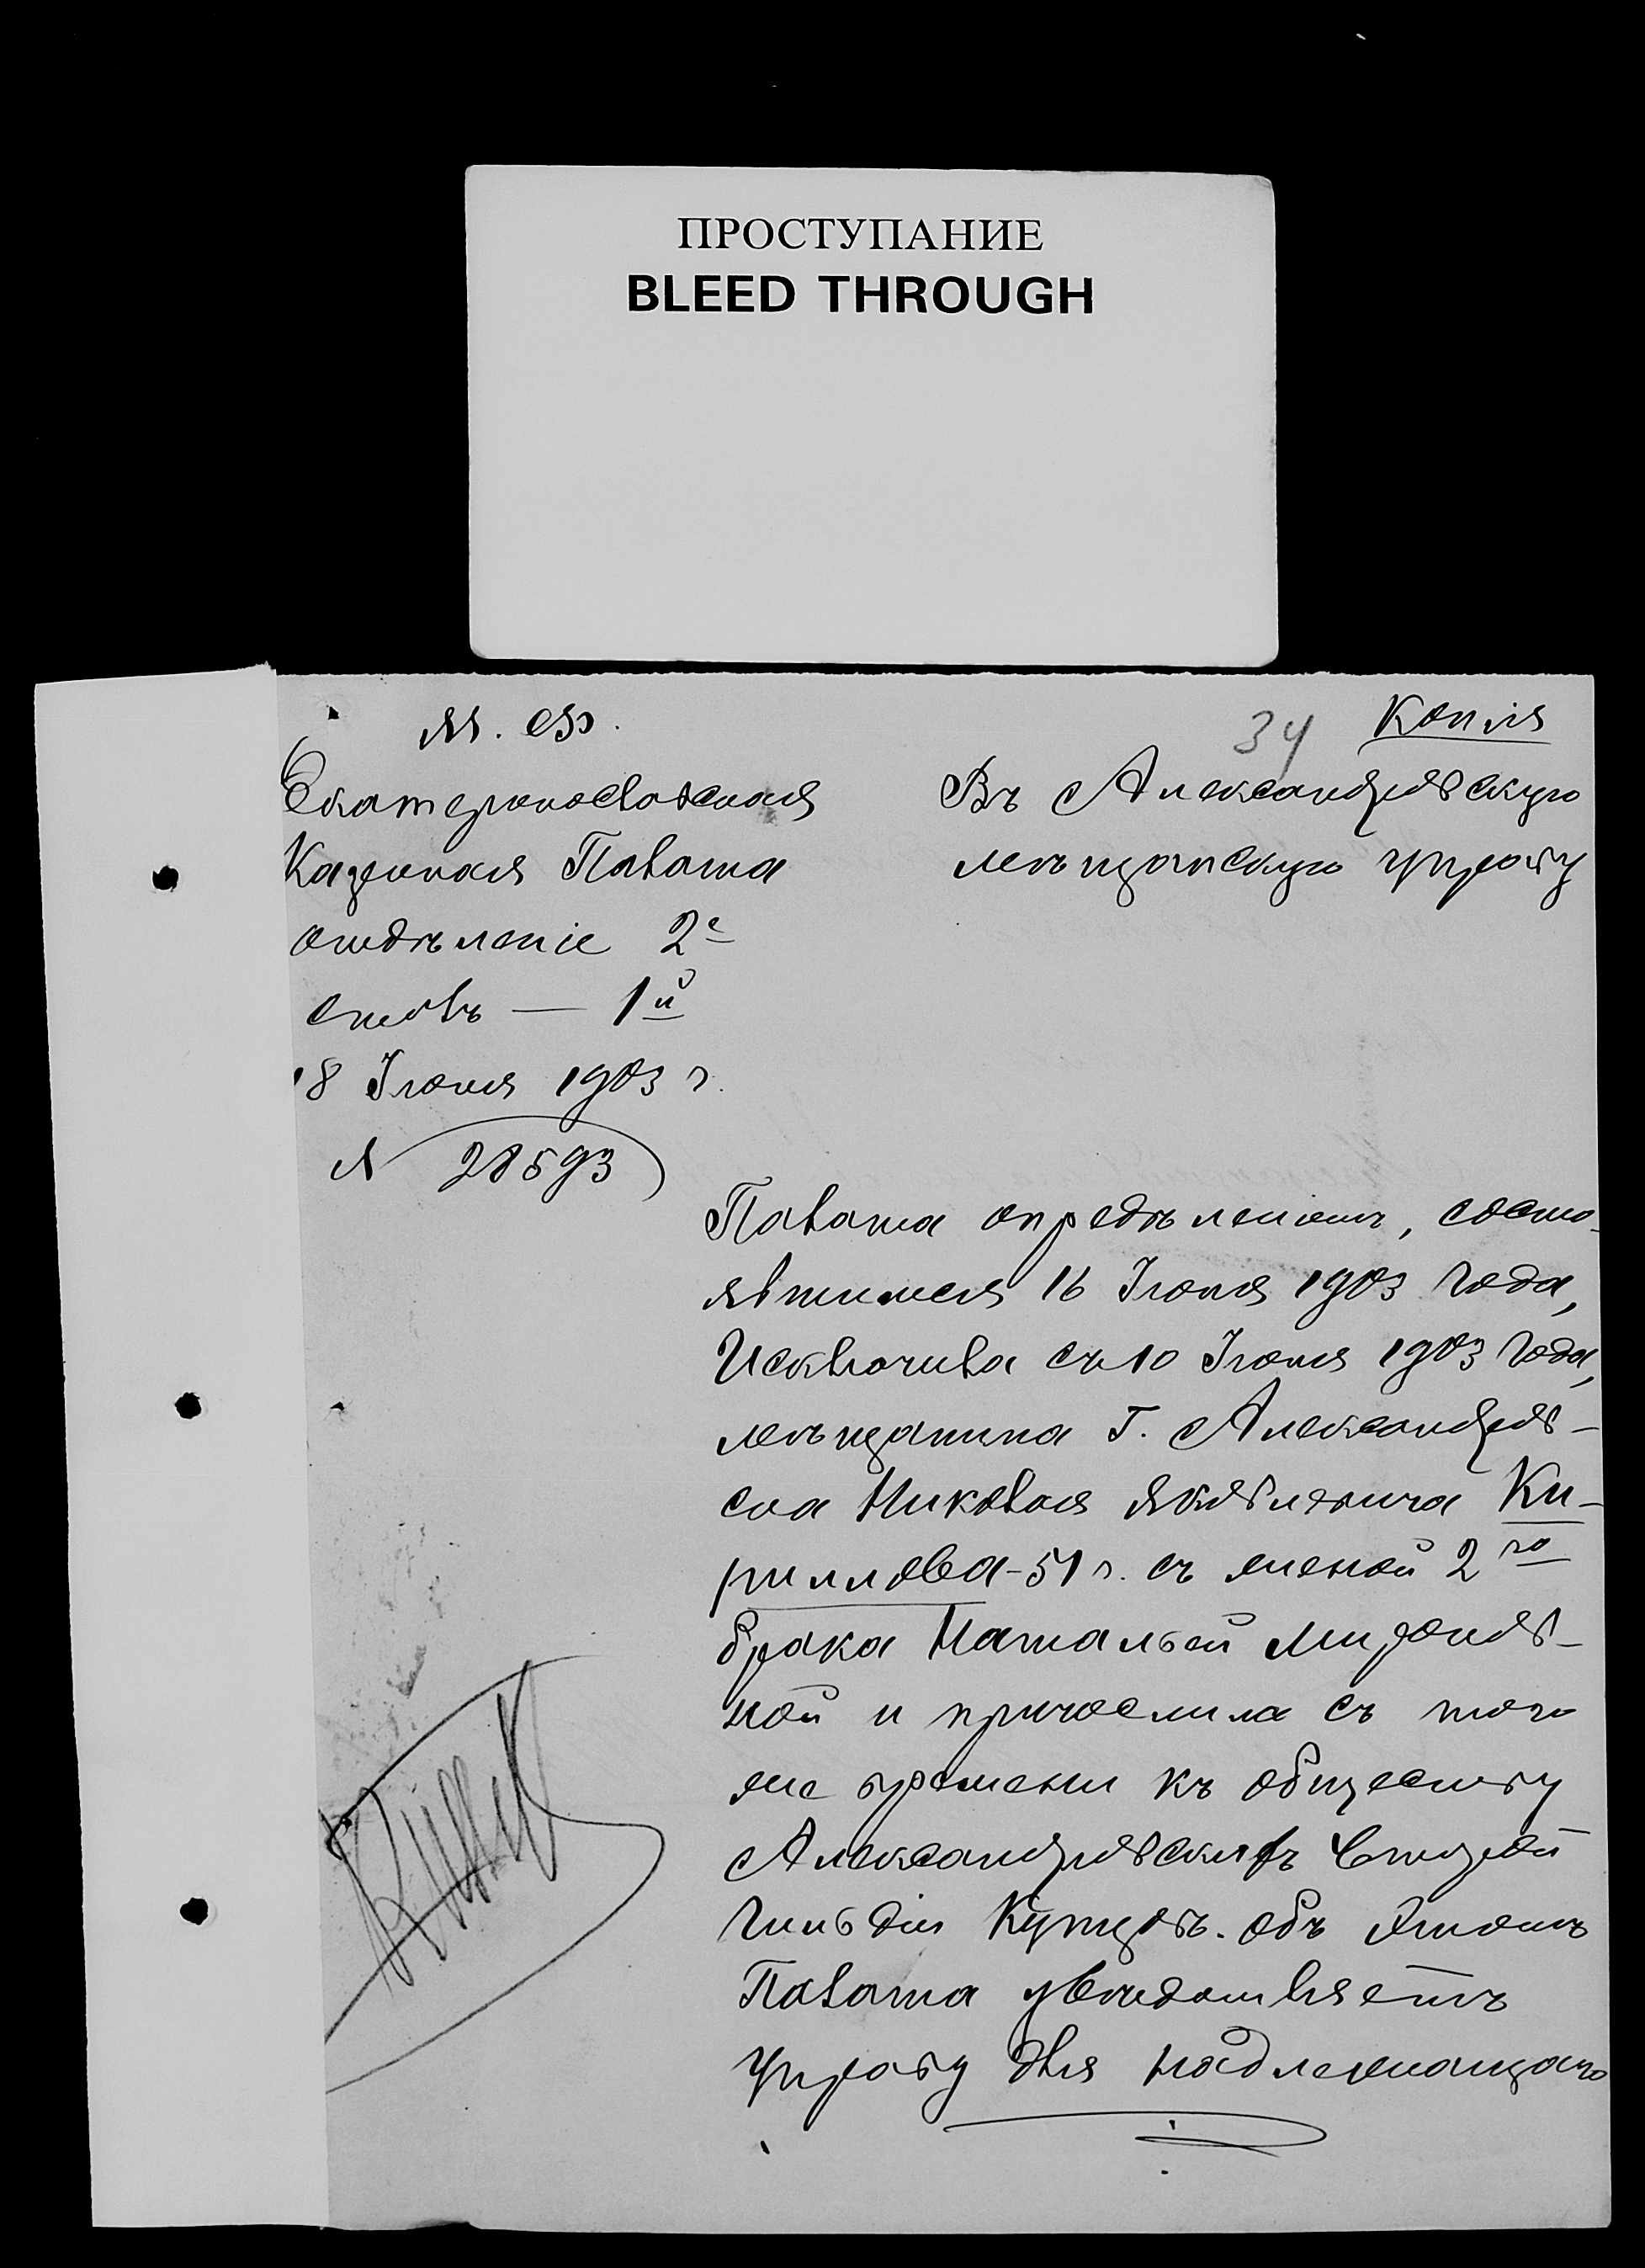 ПРОСТУПАНИЕ
BLEED THROUGH
34
Копія
М. Ф.
Екатеринославская
Казенная Палата
отдѣленіе 2е
столъ — 1й
18 Іюня 1903 г.
№ 28593
Въ Александровскую
мѣщанскую управу
Палата опредѣленіемъ, состо-
явшимся 16 Іюня 1903 года,
Исключила съ 10 Іюня 1903 года,
мѣщанина г. Александров-
ска Николая Яковлевича Ки-
риллова-51 г. съ женой 2го
брака Натальей Миронов-
ной и причислила съ того
же времени къ обществу
Александровскихъ второй
гильдіи Купцовъ. объ этомъ
Палата увѣдомляетъ
управу для надлежащаго